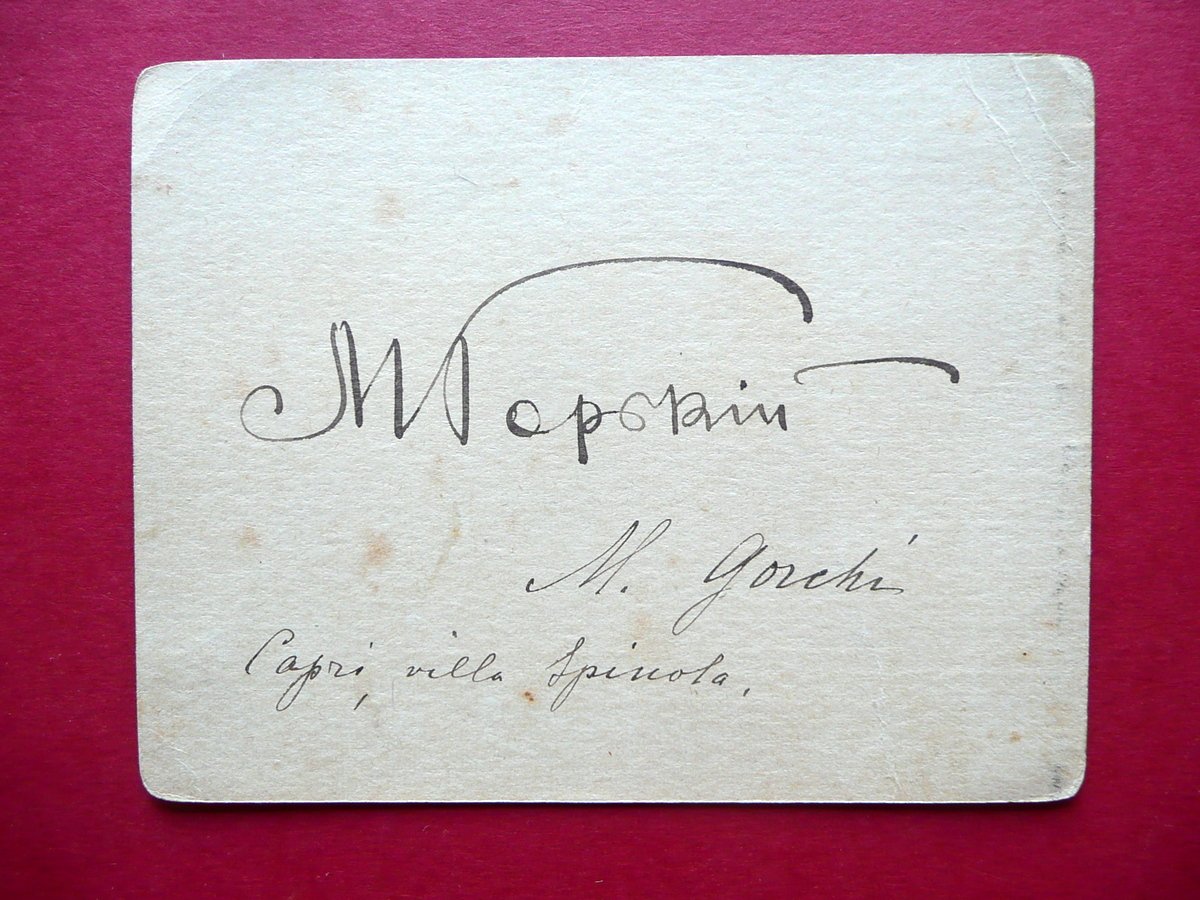 М Горькій
M. Gorchi
Capri, villa Spinola.